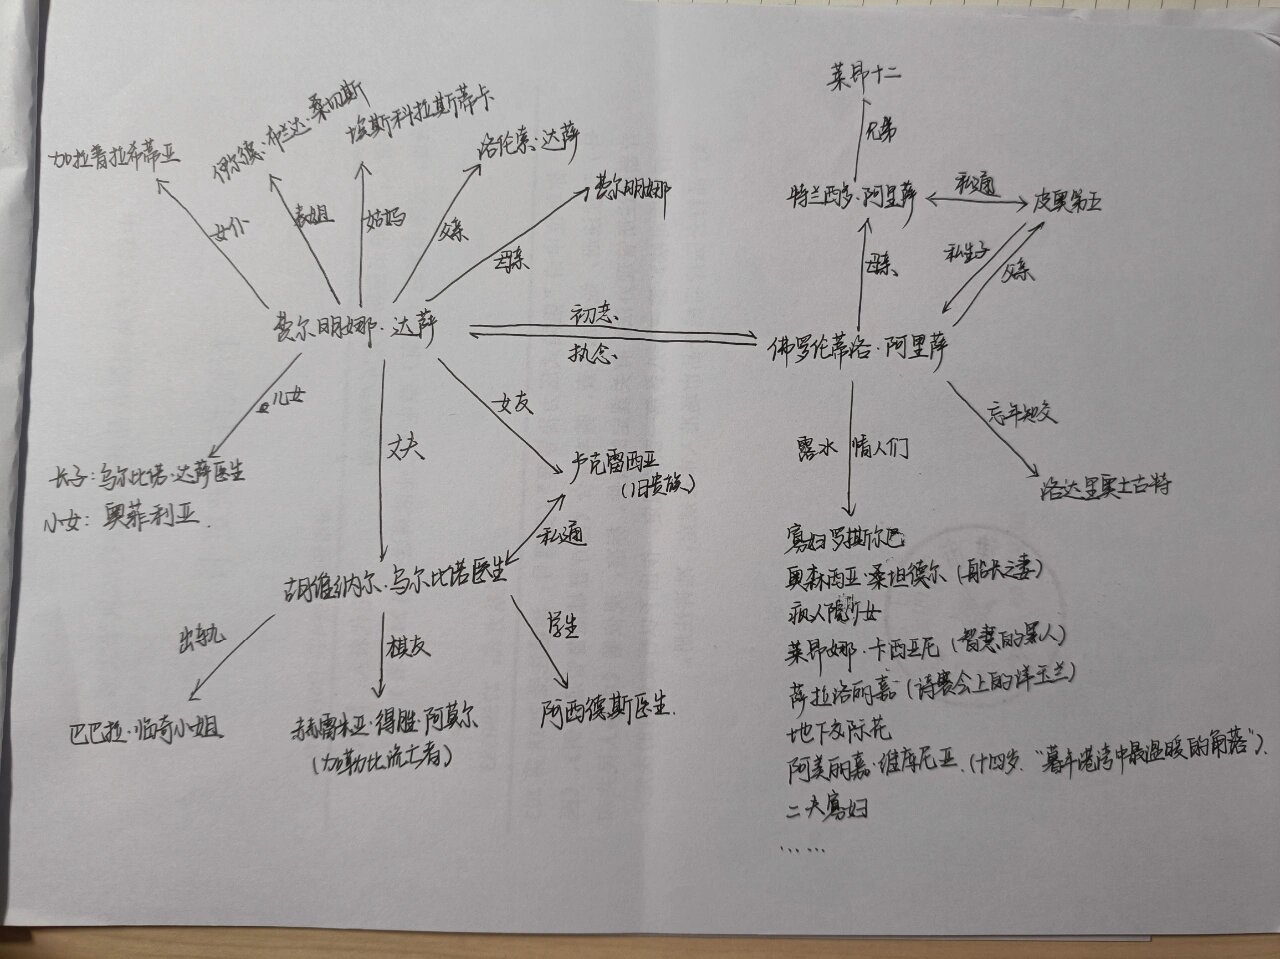 莱昂十二
兄弟
加拉普拉希蒂亚
伊尔德·布兰达·桑切斯
埃斯科拉斯蒂卡
洛伦索·达萨
费尔明娜
特兰西多·阿里萨
私通
皮奥第五
女仆
表姐
姑妈
父亲
母亲
母亲
私生子
父亲
费尔明娜·达萨
初恋
执念
佛罗伦蒂洛·阿里萨
儿女
丈夫
女友
露水 情人们
忘年知交
长子:乌尔比诺·达萨医生
小女:奥菲利亚
卢克雷西亚
(旧贵族)
洛达里奥士古特
私通
寡妇罗掰尔巴
胡维纳尔·乌尔比诺医生
奥森西亚·桑坦德尔(船长之妻)
疯人院少女
出轨
棋友
学生
莱昂娜·卡西亚尼(智慧的黑人)
萨拉洛丽嘉(诗赛会上的洋玉兰)
巴巴拉·临奇小姐
赫雷米亚·得胜·阿莫尔
(加勒比流亡者)
阿西德斯医生.
地下交际花
阿美丽嘉·维库尼亚.(十四岁.“暮年港湾中最温暖的角落”).
二夫寡妇
……